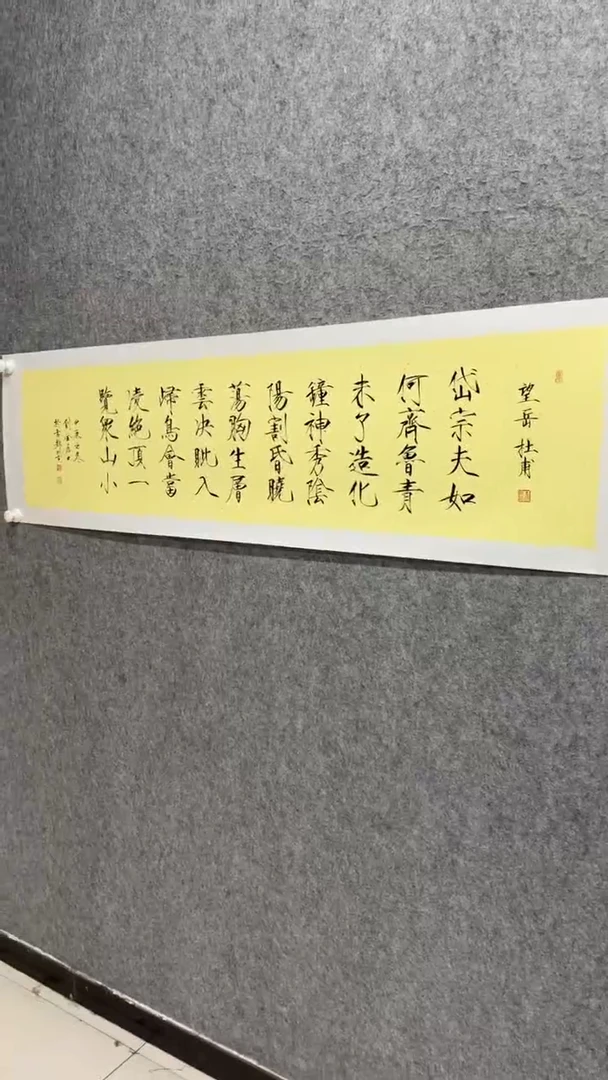 望岳 杜甫
岱宗夫如
何齊魯青
未了造化
鐘神秀陰
陽割昏曉
蕩胸生層
雲决眦入
歸鳥會當
凌絶頂一
覽眾山小